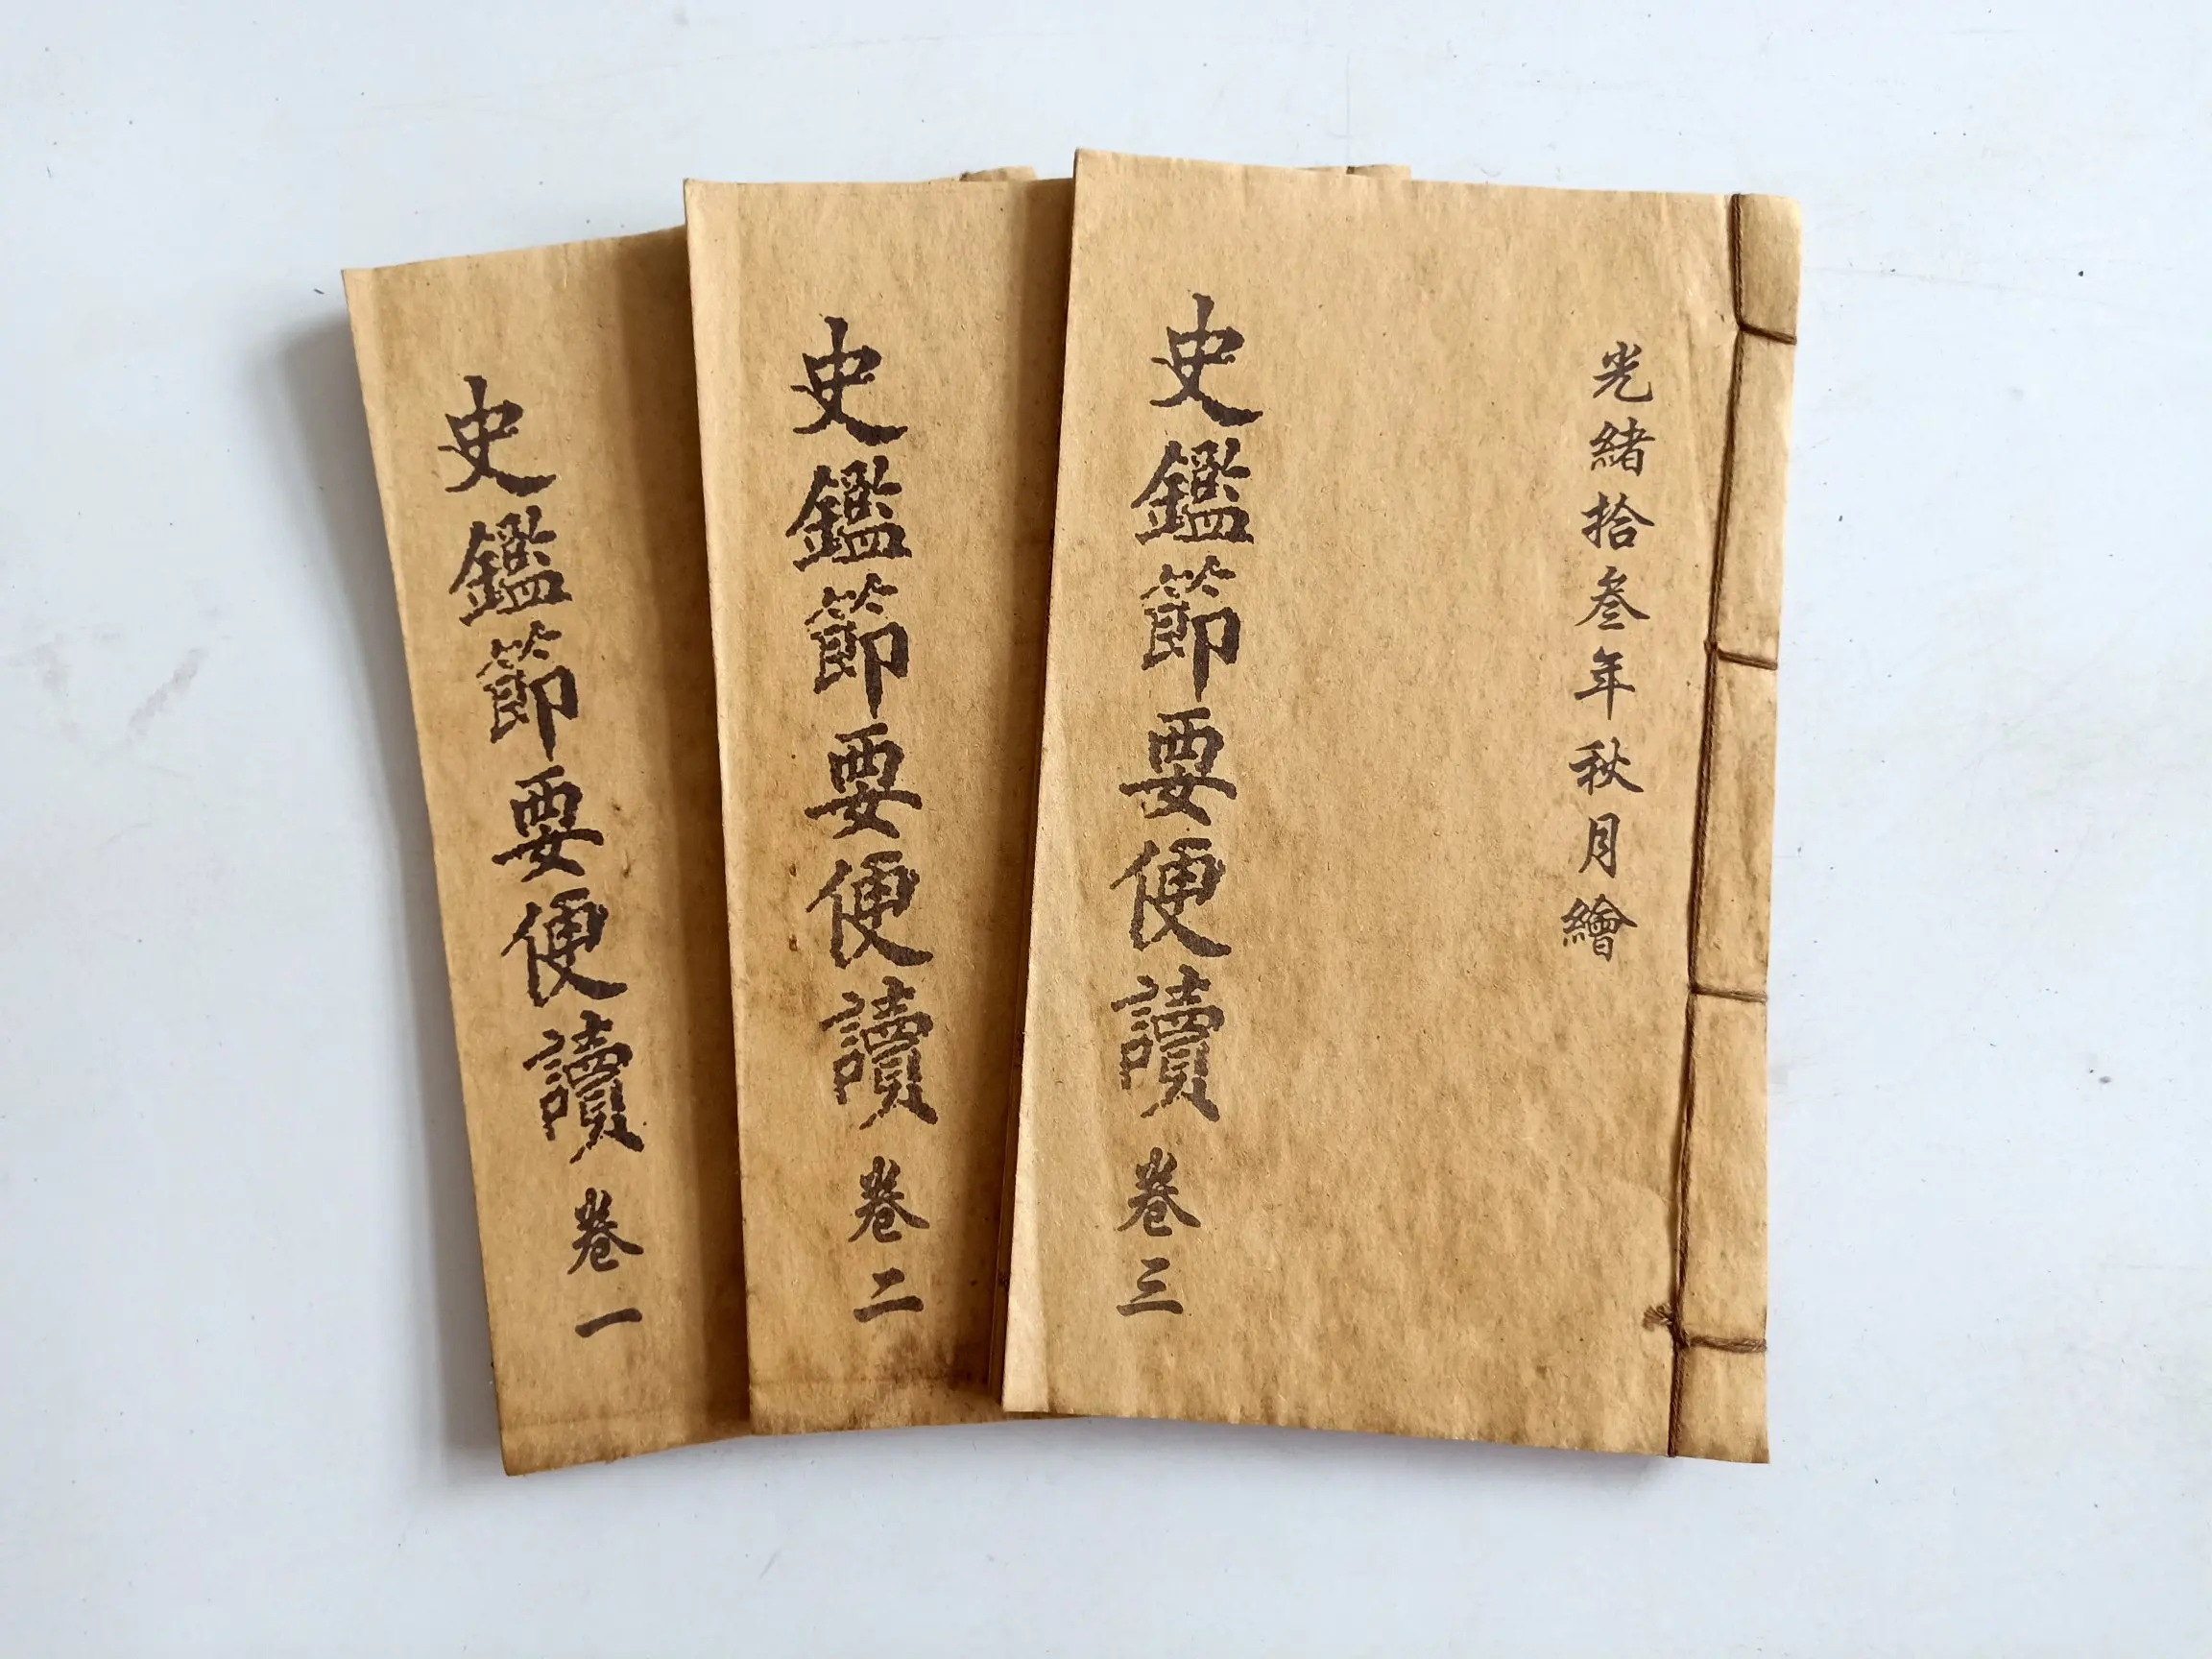 光緒拾叁年秋月繪
史鑑節要便讀 卷三
史鑑節要便讀 卷二
史鑑節要便讀 卷一